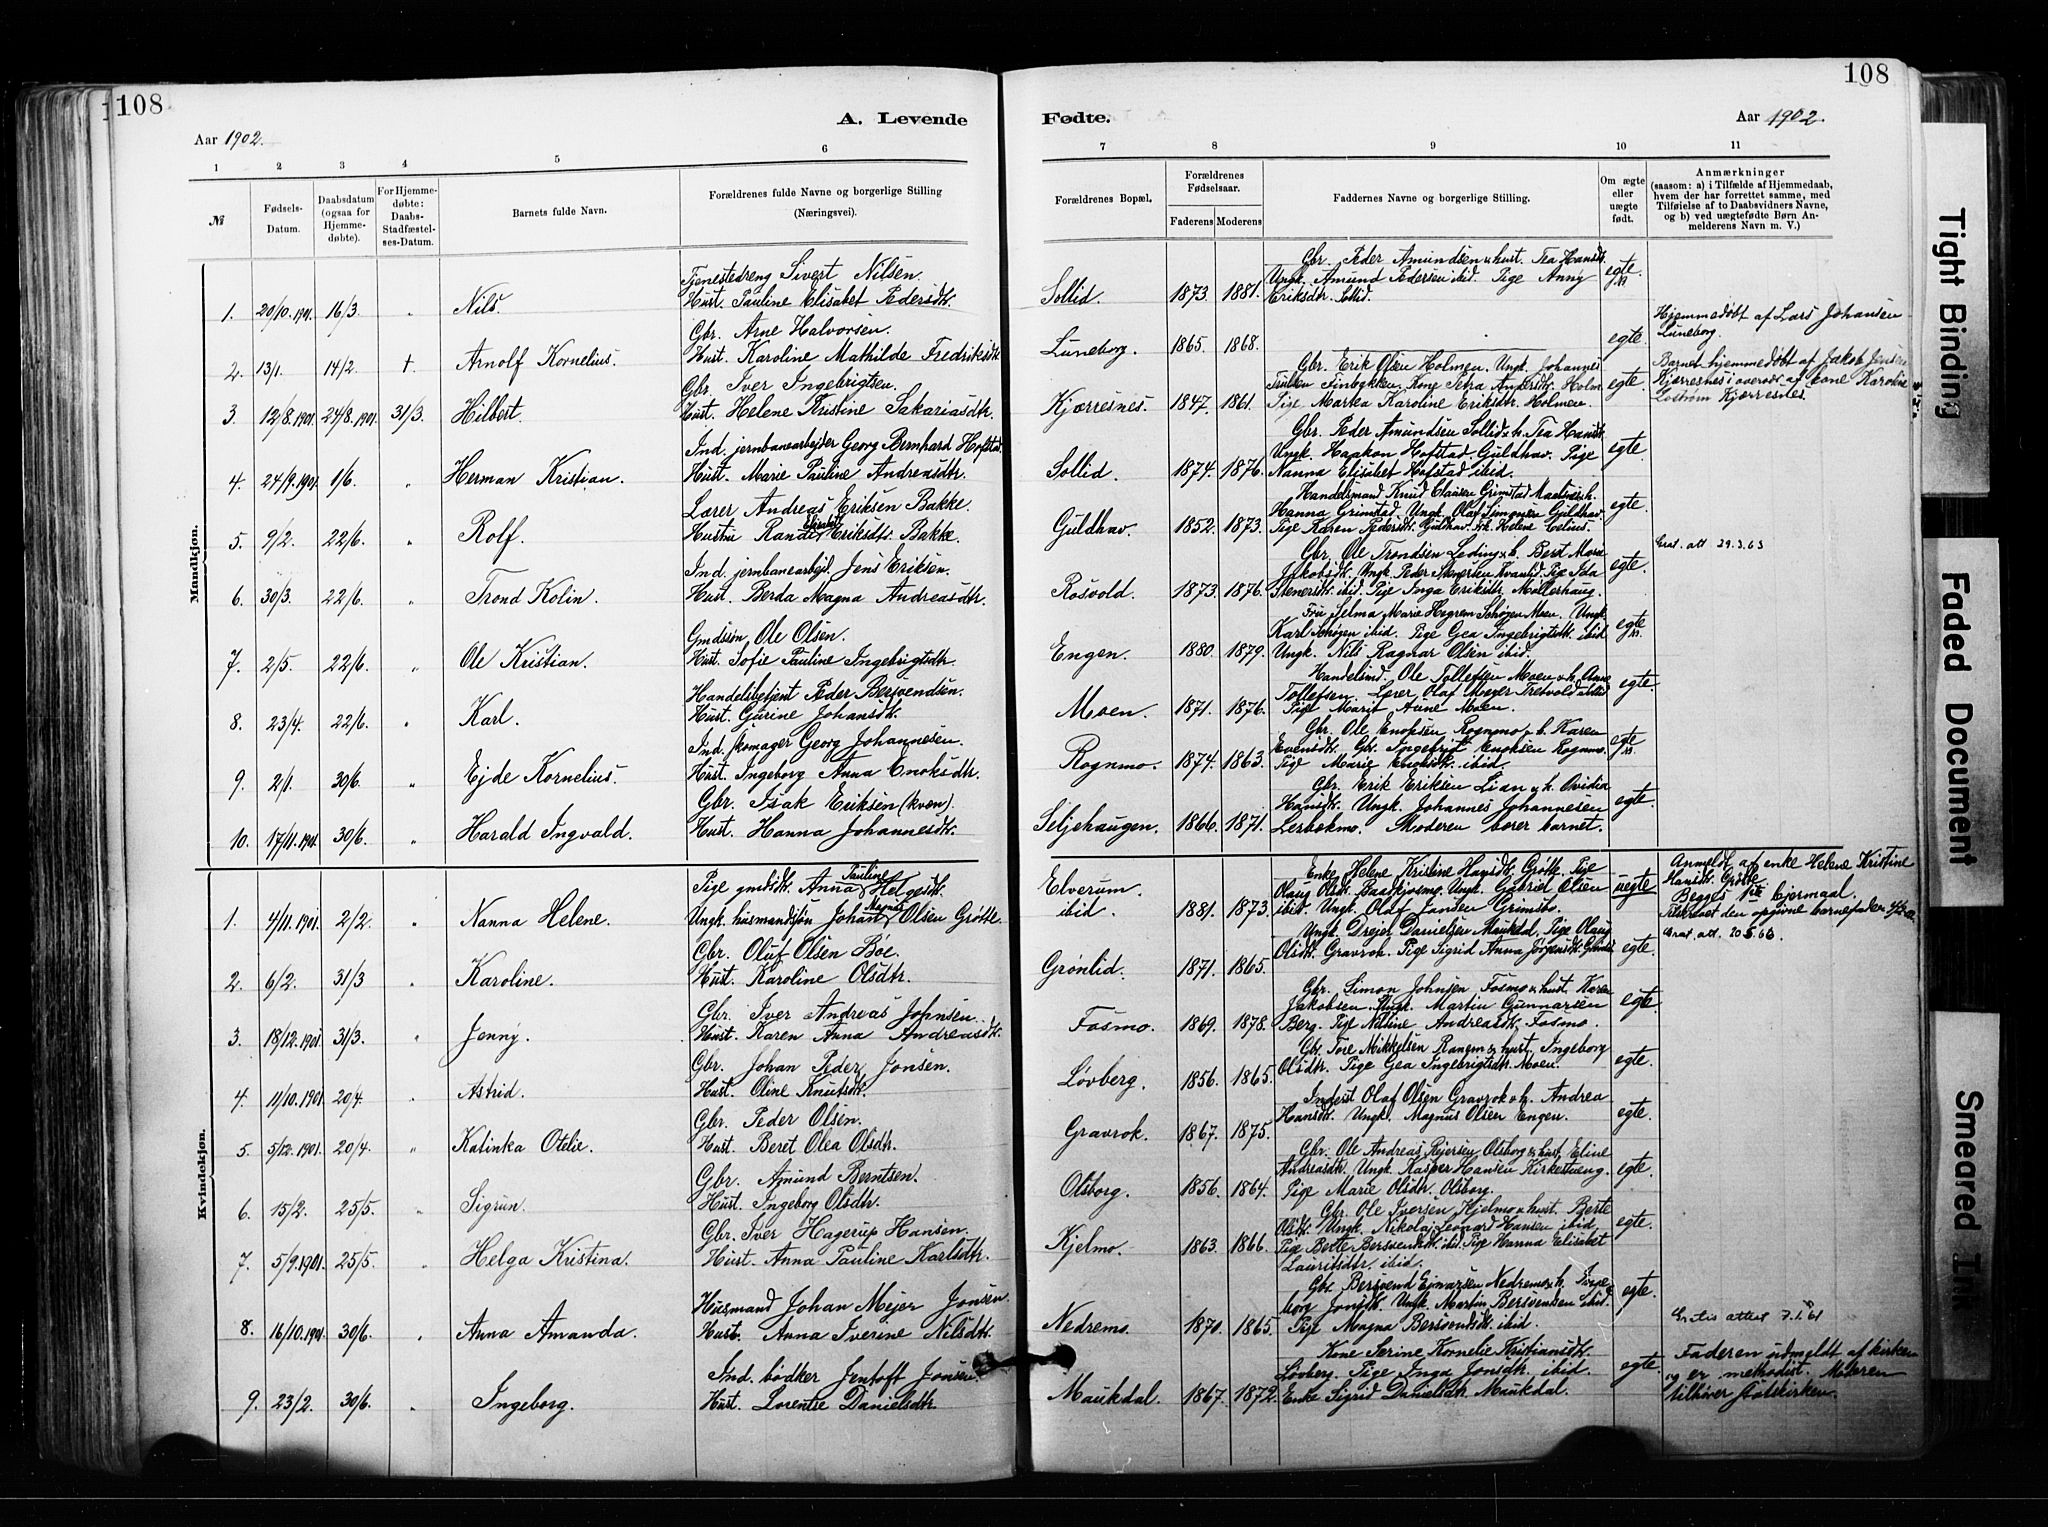 108
108
A. Levende
Fødte.
Aar 1902.
Aar 1902.
1 2 3 4 5 6
7 8 9 10 11
№
Fødsels-Datum.
Daabsdatum (ogsaa for Hjemme-døbte).
For Hjemme-døbte: Daabs-Stadfæstel-ses-Datum.
Barnets fulde Navn.
Forældrenes fulde Navne og borgerlige Stilling (Næringsvei).
Forældrenes Bopæl.
Forældrenes Fødselsaar.
Faderens Moderens
Faddernes Navne og borgerlige Stilling.
Om ægte eller uægte født.
Anmærkninger
(saasom: a) i Tilfælde af Hjemmedaab,
hvem der har forrettet samme, med
Tilføielse af to Daabsvidners Navne,
og b) ved uægtefødte Børn An-
melderens Navn m. V.)
Mandkjøn.
Tjenestedreng Sivert Nilsen.
1. 20/10.1901. 16/3 „ Nils. Hust. Pauline Elisabet Pedersdtr.
Gbr. Arne Halvorsen.
2. 13/1. 14/2. † Arnolf Kornelius. Hust. Karoline Mathilde Fredriksdtr.
Gbr. Iver Ingebrigtsen.
3 12/8.1901. 24/8.1901. 31/3. Hilbert. Hust. Helene Kristine Sakariasdtr.
Ind. jernbanearbejder Georg Bernhard Hofstad.
4. 24/9.1901. 1/6. „ Herman Kristian. Hust. Marie Pauline Andreasdtr.
Lærer Andreas Eriksen Bakke.
5. 9/2. 22/6. „ Rolf. Hustru Randi Elisabet Eriksdtr. Bakke.
Ind. jernbanearbejd. Jens Eriksen.
6. 30/3. 22/6. „ Trond Kolin. Hust. Berda Magna Andreasdtr.
Gmdssøn Ole Olsen.
7. 2/5. 22/6. „ Ole Kristian. Hust. Sofie Pauline Ingebrigtsdtr.
Handelsbetjent Peder Bersvendsen.
8. 23/4. 22/6. „ Karl. Hust. Gurine Johansdtr.
Ind. skomager Georg Johannesen.
9. 2/1. 30/6. „ Ejde Kornelius. Hust. Ingeborg Anna Enoksdtr.
Gbr. Isak Eriksen (kvæn).
10. 17/11.1901. 30/6. „ Harald Ingvald. Hust. Hanna Johannesdtr.
Kvindekjøn.
Pige gmdsdtr. Anna Pauline Helgesdtr.
1. 4/11.1901. 2/2. „ Nanna Helene. Ungk. husmandssøn Johan Magnus Olsen Grøtte.
Gbr. Oluf Olsen Bøe.
2. 6/2. 31/3 „ Karoline. Hust. Karoline Olsdtr.
Gbr. Iver Andreas Johnsen.
3. 18/12.1901. 31/3. „ Jenny. Hust. Karen Anna Andreasdtr.
Gbr. Johan Peder Jonsen.
4. 11/10.1901. 20/4. „ Astrid. Hust. Oline Knutsdtr.
Gbr. Peder Olsen.
5. 5/12.1901. 20/4. „ Katinka Otelie. Hust. Beret Olea Olsdtr.
Gbr. Amund Berntsen.
6. 15/2. 25/5. „ Sigrun. Hust. Ingeborg Olsdtr.
Gbr. Iver Hagerup Hansen.
7. 5/9.1901. 25/5. „ Helga Kristina. Hust. Anna Pauline Karlsdtr.
Husmand Johan Mejer Jonsen.
8. 16/10.1901. 30/6. „ Anna Amanda. Hust. Anna Iverine Nilsdtr.
Ind. bødker Jentoft Jonsen.
9. 23/2. 30/6. „ Ingeborg. Hust. Lorentse Danielsdtr.
Gbr. Peder Amundsen & hust. Tea Hansd.
Ungk. Amund Pedersen ibid. Pige Anny
Sollid. 1873. 1881. Eriksdtr. Sollid. egte
Hjemmedøbt af Lars Johansen
Luneborg. 1865. 1868. egte. Luneborg.
Gbr. Erik Olsen Holmen. Ungk. Johannes
Kone Petra Andersdtr. Holm.
Kjærresnes. 1847. 1861. Pige Marka Karoline Eriksdtr. Holmen. egte.
Barnet hjemmedøbt af Jakob Jensen
Kjærresnes i overv. af kone Karoline
Kjærresnes.
Gbr. Peder Amundsen Sollid & h. Tea Hansdtr.
Ungk. Haakon Hofstad. Guldhav. Pige
Sollid. 1874. 1876. Nanna Elisabet Hofstad ibid. egte.
Handelsmand Knud Clausen Grimstad Maalsnes & h.
Hanna Grimstad. Ungk. Olaf Simonsen Guldhav.
Guldhav. 1852. 1873. Pige Karen Pedersdtr. Guldhav. Helene egte.
Grat. att 29.3.63
Gbr. Ole Trondsen Leding & h. Beret Marie
Jakobsdtr. Ungk. Peder Stenersen Kvanlid. Pige Ida
Rosvold. 1873. 1876. Stenersdtr. ibid. Pige Inga Eriksdtr. Møllerhaug. egte.
Fru Selma Marie Hegrem Schøyen Moen. Ungk.
Karl Schøyen ibid. Pige Gea Ingebrigtsdtr. ibid
Engen. 1880. 1879. Ungk. Nils Ragnar Olsen ibid. egte
Handelsmd. Ole Tollefsen Moen & h. Anne
Tollefsen. Lærer Olaf Meyer Tretvold
Moen. 1871. 1876. Pige Marit Aune Moen. egte.
Gbr. Ole Enoksen Rognmo & h. Karen
Evensdtr. Gbr. Ingebrigt Enoksen Rognmo.
Rognmo. 1874. 1863. Pige Marie Enoksdtr. ibid. egte
Gbr. Erik Eriksen Lian & h. Ovidia
Hansdtr. Ungk. Johannes Johannesen
Seljehaugen. 1866. 1871. Lerbekmo. Moderen bærer barnet. egte.
Enke Helene Kristine Hansdtr. Grøtte. Pige
Elverum. Olaug Olsdtr. Ungk. Gabriel Olsen uegte
ibid. 1881. 1873. ibid. Ungk. Olaf Jansen Grimsbo.
Anmeldt af enke Helene Kristine
Hansdtr. Grøtte
Begges 1ste lejermaal.
den opgivne barnefader
Grat. att. 20.5.63.
Ungk. Drejer Danielsen Maukdal. Pige Olaug
Grønlid. 1871. 1865. Olsdtr. Gravrok. Pige Sigrid Anna Jørgensdtr. egte.
Gbr. Simon Johnsen Fosmo & hust. Karen
Jakobsen. Ungk. Martin Gunnarsen
Fosmo. 1869. 1878. Berg. Pige Nelline Andreasdtr. Fosmo. egte.
Gbr. Tore Mikkelsen Ranem & hust. Ingeborg
Løvberg. 1856. 1865. Olsdtr. Pige Gea Ingebrigtsdtr. Moen. egte.
Inderst Olaf Olsen Gravrok & h. Andrea
Gravrok. 1867. 1875. Hansdtr. Ungk. Magnus Olsen Engen. egte.
Gbr. Ole Andreas Rejersen Olsborg & hust. Eline
Andreasdtr. Ungk. Kasper Hansen Kirkestueng.
Olsborg. 1856. 1864. Pige Marie Olsdtr. Olsborg. egte.
Gbr. Ole Iversen Kjelmo & hust. Berte
Olsdtr. Ungk. Nikolaj Leonard Hansen ibid.
Kjelmo. 1863. 1866. Pige Berte Bersvendsdtr. ibid. Pige Hanna Elisabet egte.
Lauritsdtr. ibid.
Gbr. Bersvend Ejnarsen Nedremo & h. Inge-
borg Jonsdtr. Ungk. Martin Bersvendsen ibid.
Nedremo. 1870. 1865. Pige Magna Bersvendsdtr. ibid. egte.
Gratis attest 7.1.61
Kone Serine Kornelie Kristiansdtr.
Løvberg. Pige Inga Jonsdtr. ibid.
Maukdal. 1867. 1872. Enke Sigrid Danielsdtr. Maukdal. egte.
Faderen udmeldt af kirken
og er methodist. Moderen
tilhører statskirken.
Tight Binding
Faded Document
Smeared Ink